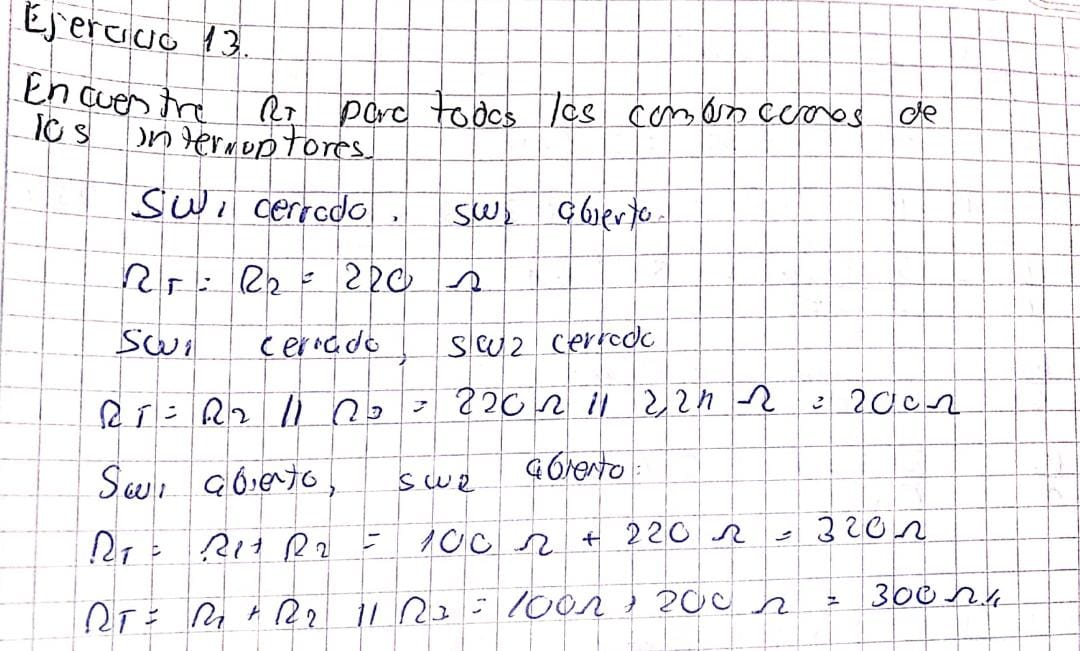 Ejercicio 13.
Encuentre RT para todas las combinaciones de
los interruptores.
SW1 cerrado. SW2 abierto.
RT = R2 = 220 Ω
SW1 cerrado, SW2 cerrado
RT = R2 // R3 = 220 Ω // 2,2k Ω = 200 Ω
SW1 abierto, SW2 abierto:
RT = R1 + R2 = 100 Ω + 220 Ω = 320 Ω
RT = R1 + R2 // R3 = 100 Ω + 200 Ω = 300 Ω